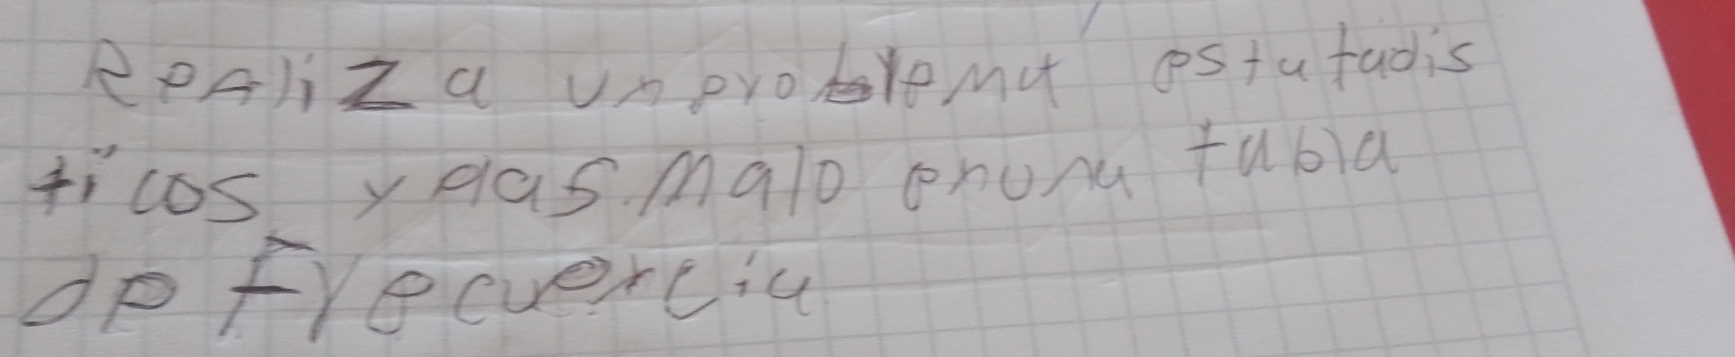 ReAliza un problema estatadis
ticos y plasmalo en una tabla
de frecuencia